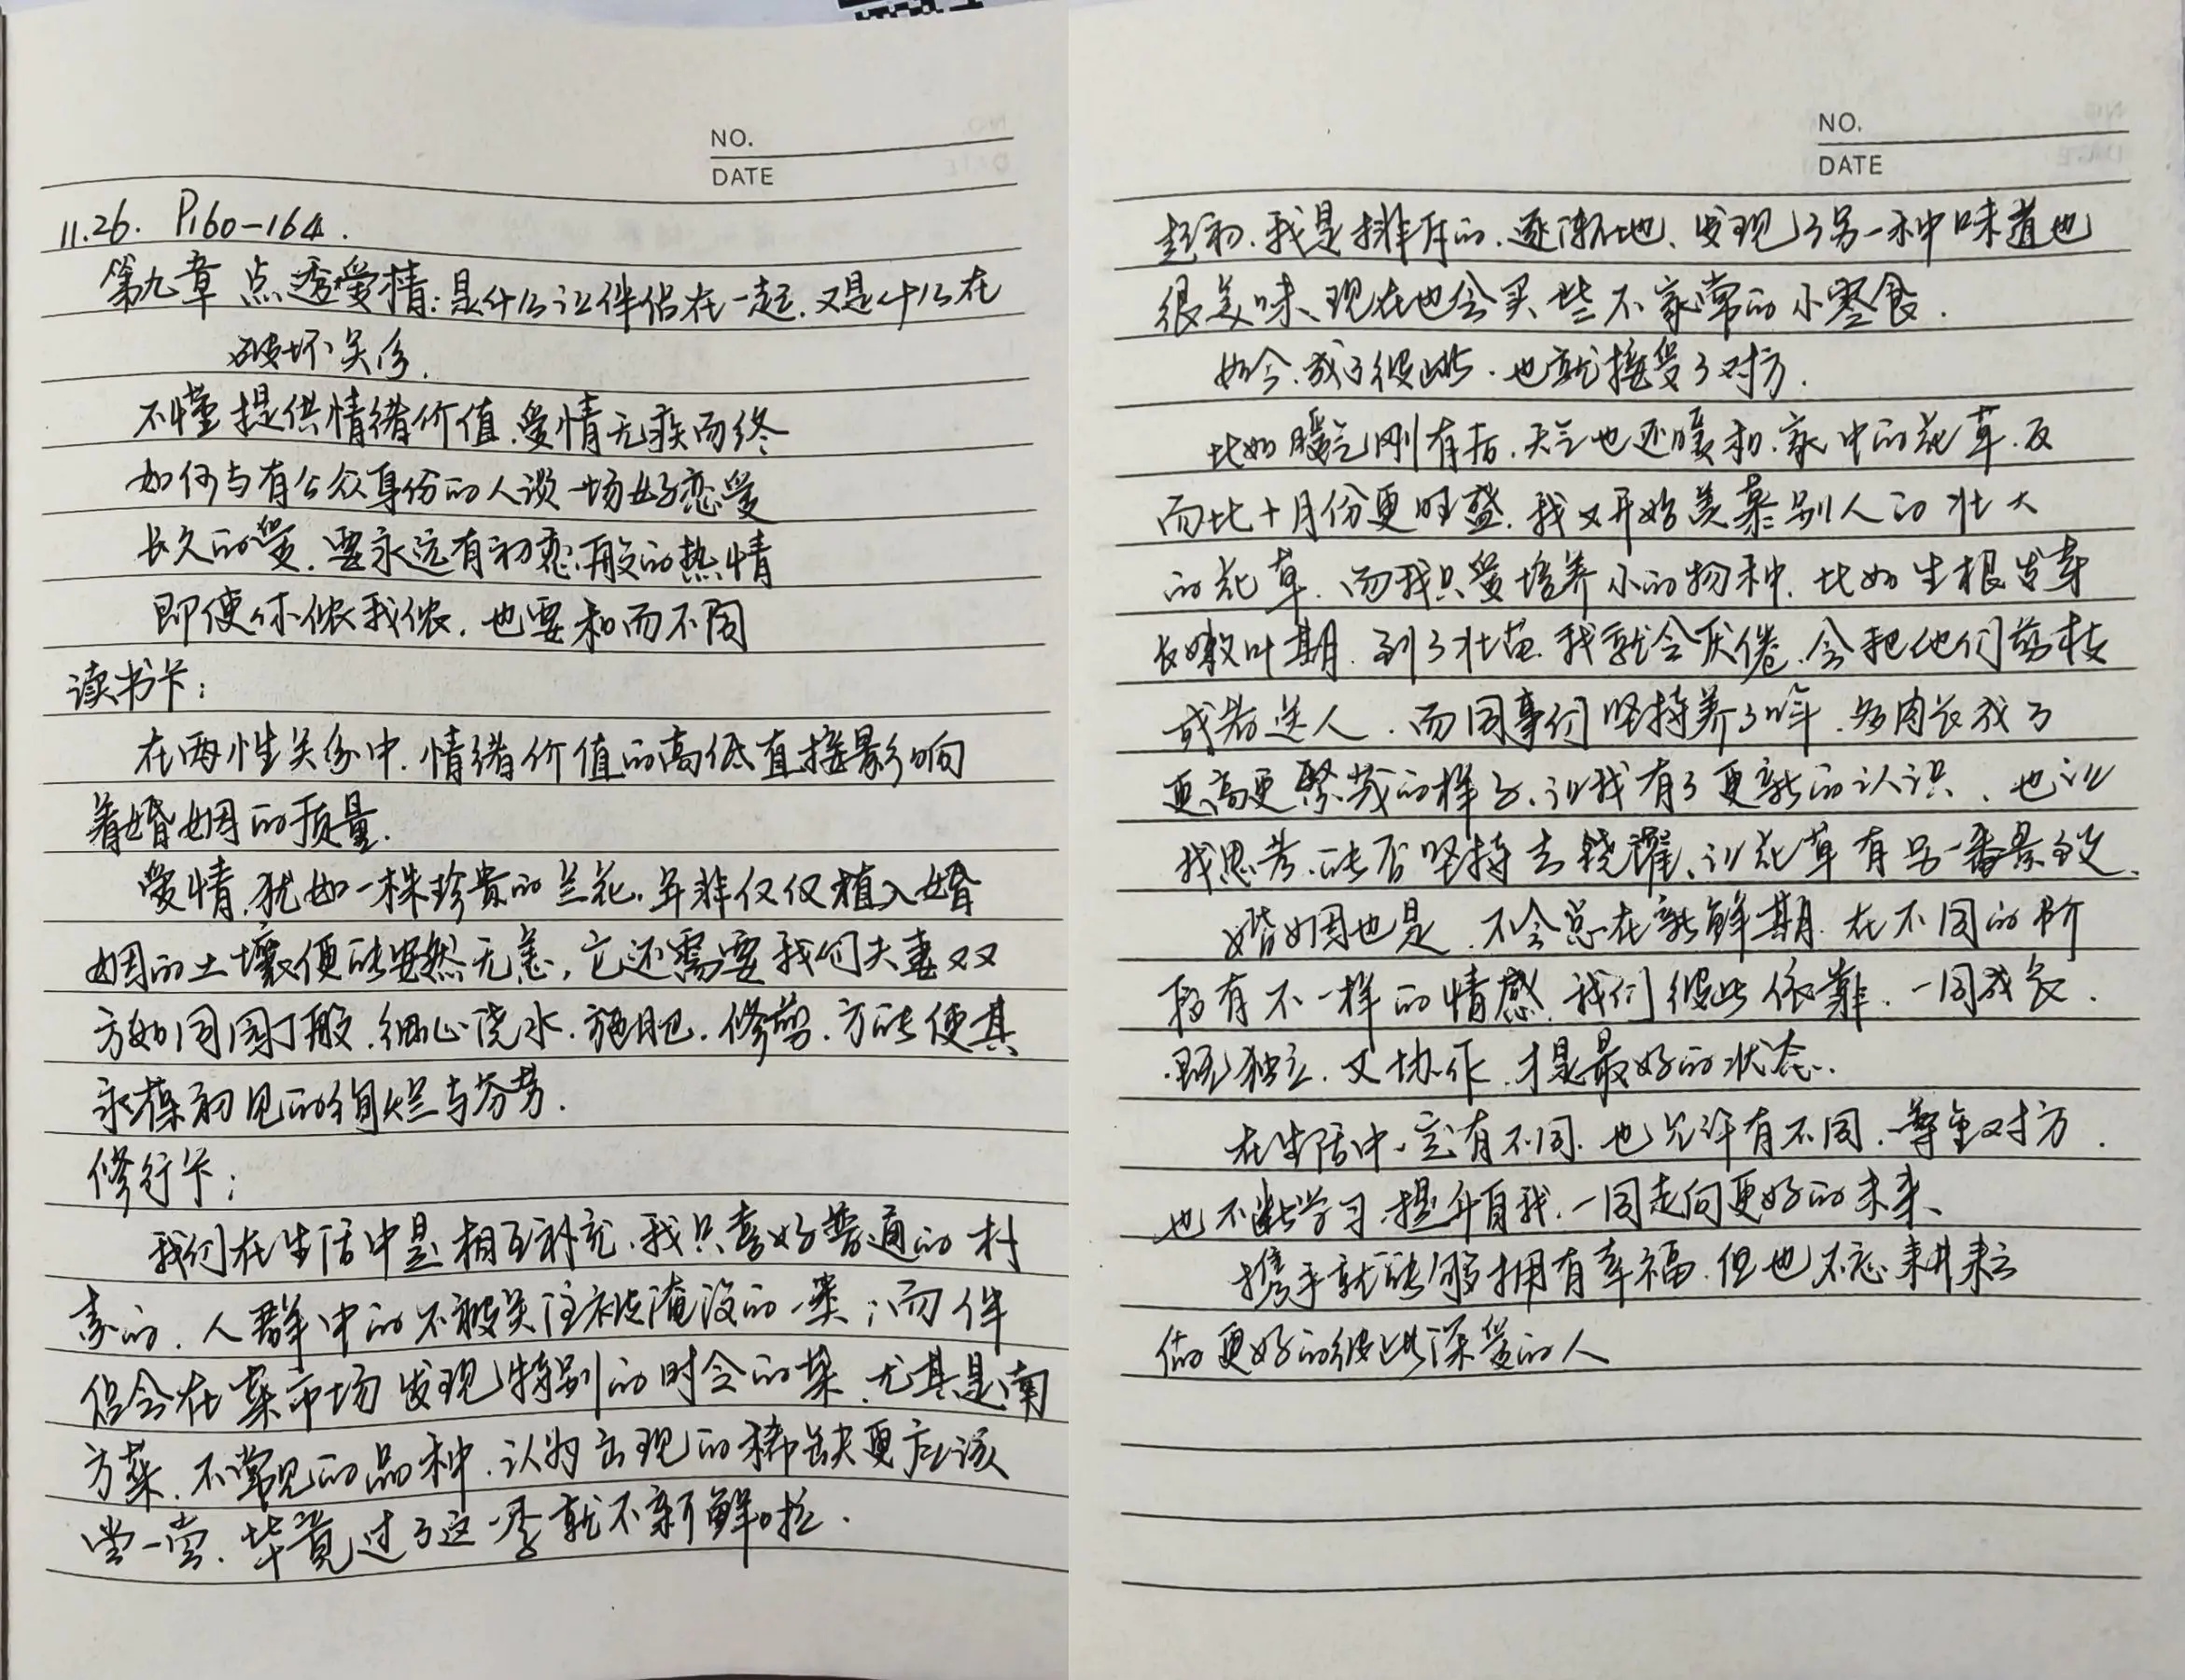 NO.
DATE
11.26. P160-164.
第九章 点透爱情:是什么让伴侣在一起,又是什么在
破坏关系.
不懂提供情绪价值,爱情无疾而终
如何与有公众身份的人谈一场好恋爱
长久的爱,要永远有初恋般的热情
即使你侬我侬,也要和而不同
读书卡:
在两性关系中,情绪价值的高低直接影响
着婚姻的质量.
爱情,犹如一株珍贵的兰花,并非仅仅植入婚
姻的土壤便能安然无恙,它还需要我们夫妻双
方如同园丁般,细心浇水,施肥,修剪,方能使其
永葆初见的绚烂与芬芳.
修行卡:
我们在生活中是相互补充,我只喜好普通的朴
素的,人群中的不被关注被淹没的一类;而伴
侣会在菜市场发现特别的时令的菜,尤其是南
方菜,不常见的品种,认为出现的稀缺更应该
尝一尝,毕竟过了这一季就不新鲜啦.
NO.
DATE
起初,我是排斥的,逐渐地,发现了另一种味道也
很美味,现在也会买些不家常的小零食.
如今,成了彼此,也就接受了对方.
比如暖气刚有点,天气也还暖和,家中的花草,反
而比十月份更旺盛,我又开始羡慕别人的壮大
的花草,而我只爱培养小的物种,比如生根发芽
长嫩叶期,到了壮苗,我就会厌倦,会把他们剪枝
或者送人,而同事们坚持养了,多肉长成了
更高更繁茂的样子,让我有了更新的认识,也让
我思考,能否坚持去,让花草有另一番景致.
婚姻也是,不会总在新鲜期,在不同的阶
段有不一样的情感,我们彼此依靠,一同成长.
既独立,又协作,才是最好的状态.
在生活中,一定有不同,也允许有不同,尊重对方.
也不断学习,提升自我,一同走向更好的未来、
携手就能够拥有幸福,但也不忘耕耘
做更好的彼此深爱的人